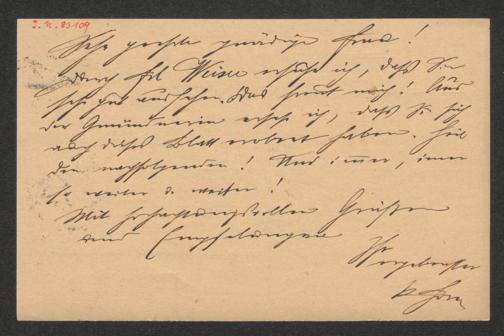 J.N. 83109
Sehr geehrte gnädige Frau!
Durch Frl Weisse erfuhr ich, daß Sie
sehr gut aussehen. Das freut mich! Aus
der Gmündnerin ersehe ich, daß Sie sich
auch dieses Blatt erobert haben. Heil
den nachfolgenden! Und immer, immer
so weiter u. weiter!
Mit hochachtungsvollen Grüßen
und Empfelungen
Ihr
ergebenster